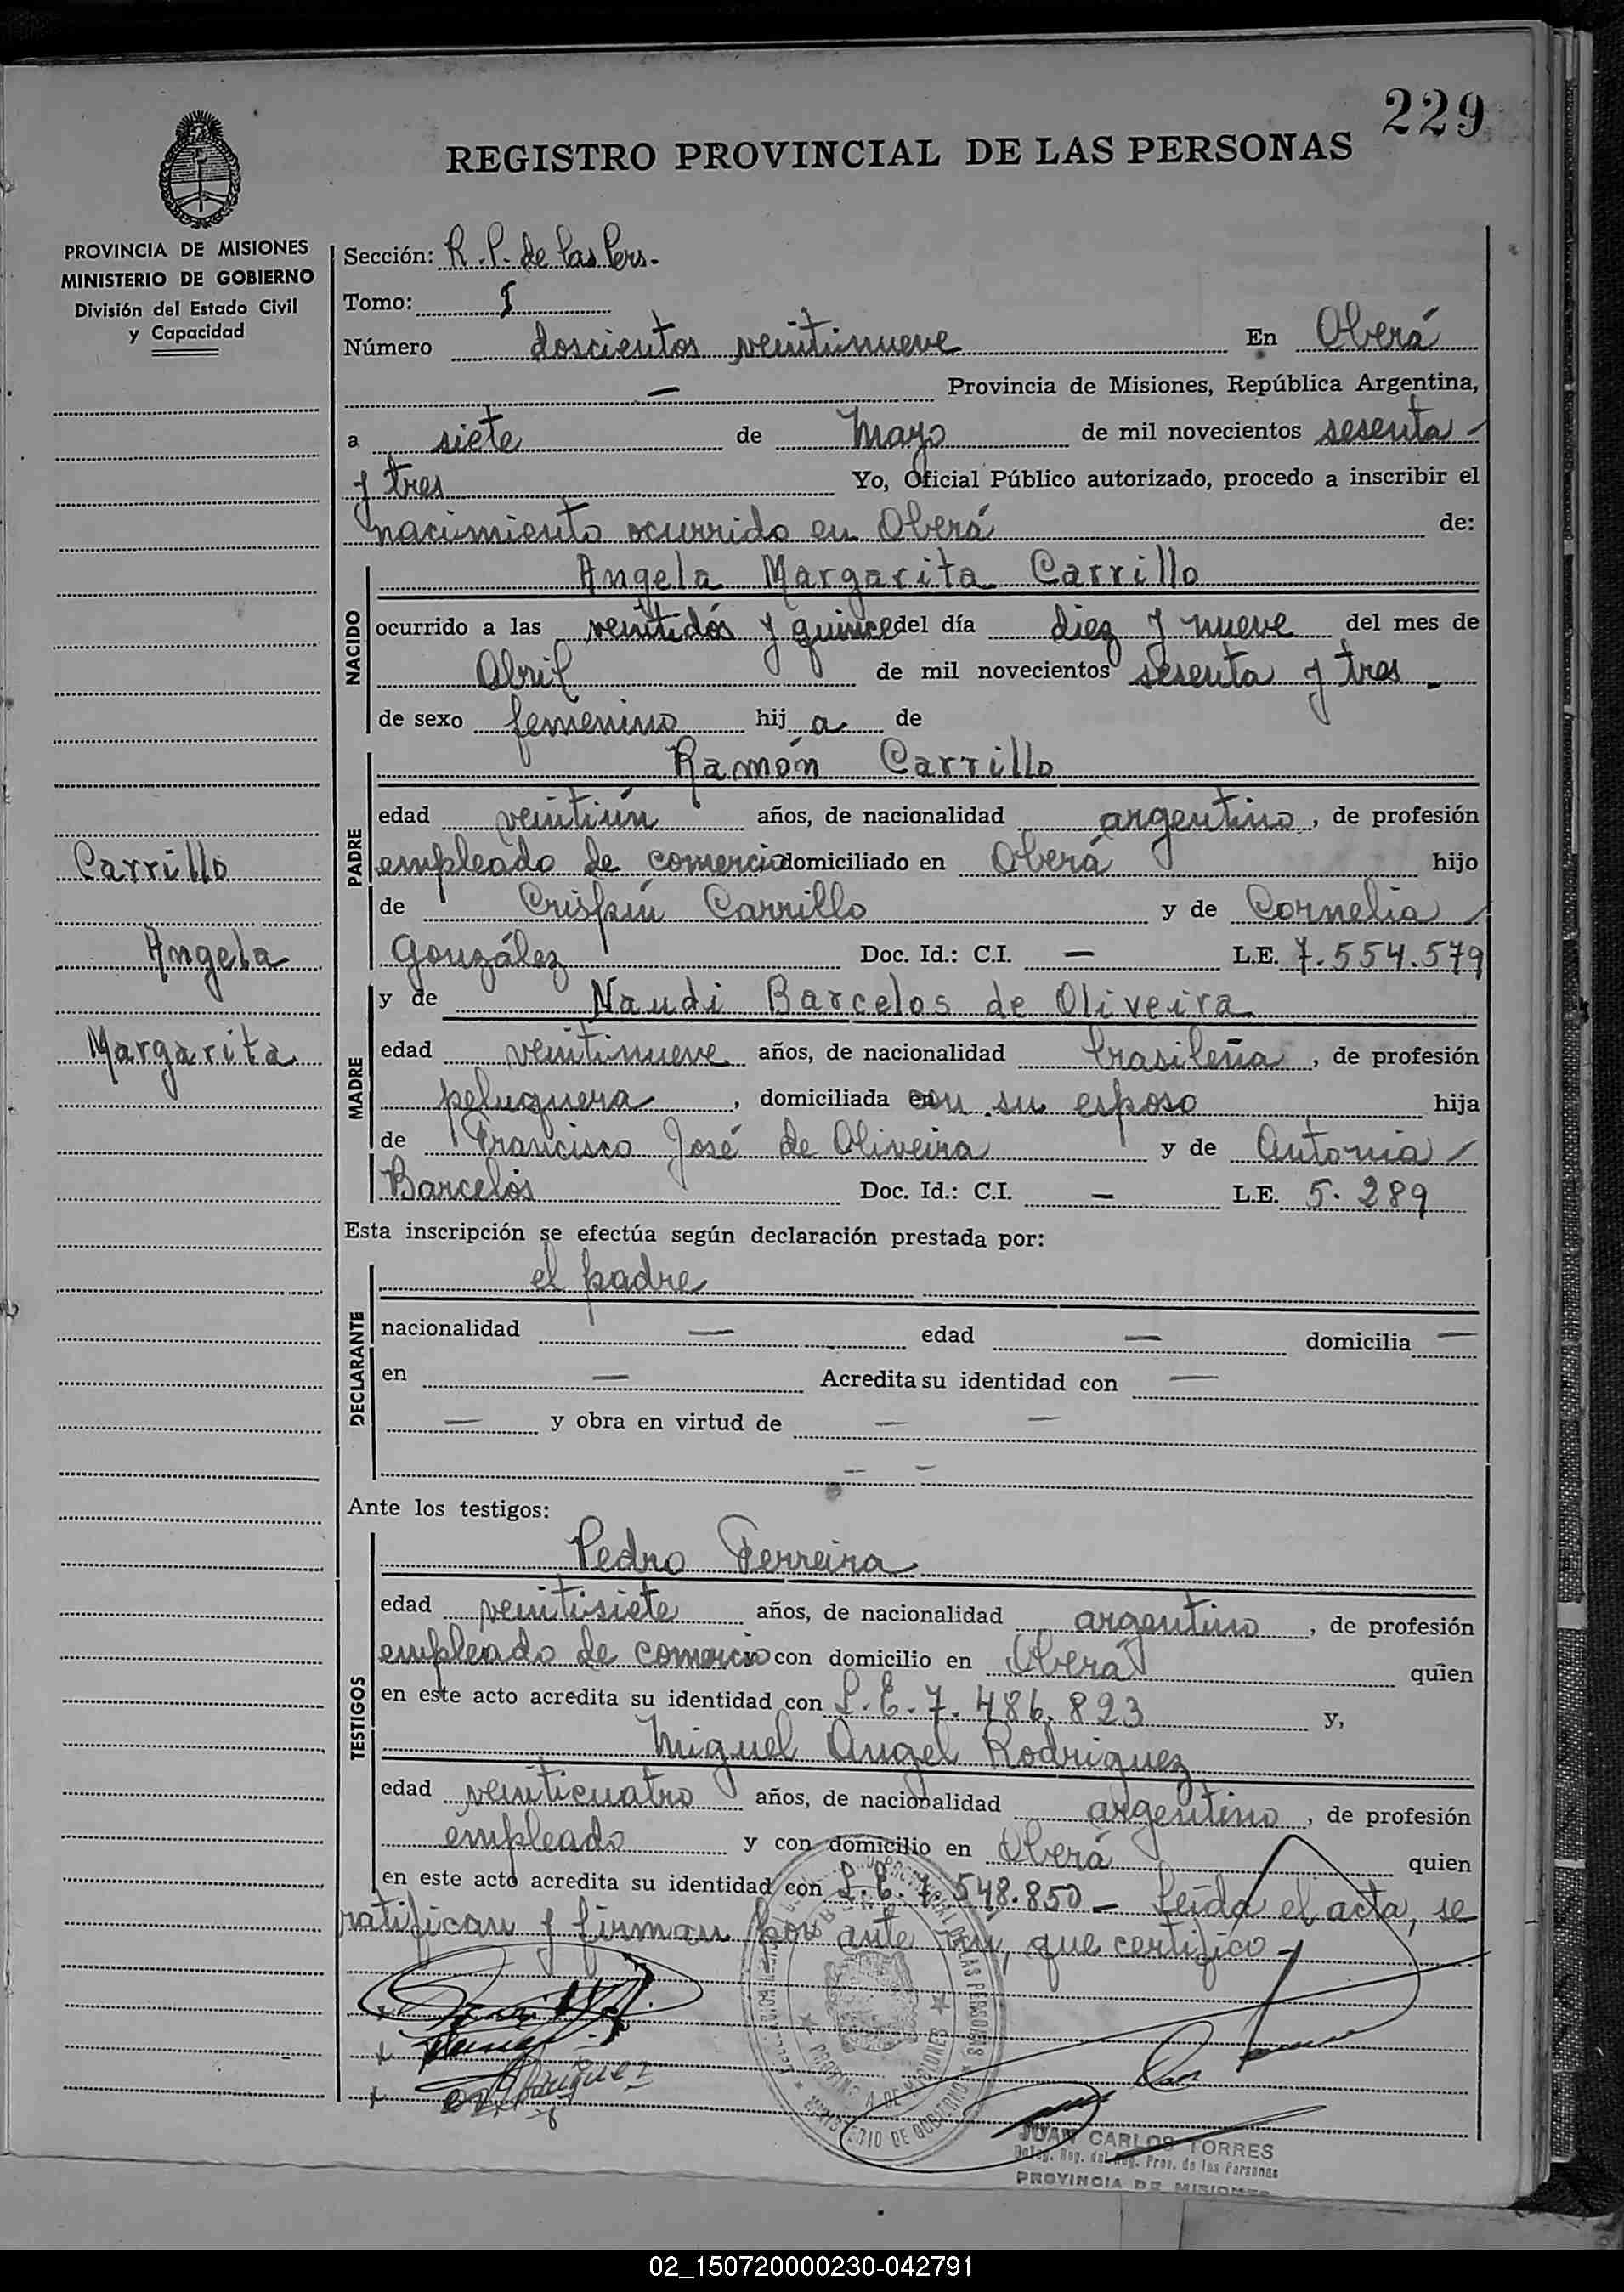 229
REGISTRO PROVINCIAL DE LAS PERSONAS
PROVINCIA DE MISIONES
MINISTERIO DE GOBIERNO
División del Estado Civil
y Capacidad
Carrillo
Angela
Margarita
Sección: R. P. de las Pers.
Tomo: I
Número doscientos veintinueve En Oberá
— Provincia de Misiones, República Argentina,
a siete de Mayo de mil novecientos sesenta
y tres Yo, Oficial Público autorizado, procedo a inscribir el
nacimiento ocurrido en Oberá de:
NACIDO
Angela Margarita Carrillo
ocurrido a las veintidós y quince del día diez y nueve del mes de
Abril de mil novecientos sesenta y tres —
de sexo femenino hij a de
PADRE
Ramón Carrillo
edad veintiún años, de nacionalidad argentino, de profesión
empleado de comercio domiciliado en Oberá hijo
de Crispín Carrillo y de Cornelia
González Doc. Id.: C.I. — L.E. 7.554.579
MADRE
y de Naudi Barcelos de Oliveira
edad veintinueve años, de nacionalidad brasileña, de profesión
peluquera, domiciliada en con su esposo hija
de Francisco José de Oliveira y de Antonia
Barcelos Doc. Id.: C.I. — L.E. 5.289
Esta inscripción se efectúa según declaración prestada por:
DECLARANTE
el padre
nacionalidad — edad — domicilia —
en — Acredita su identidad con —
— y obra en virtud de — —
— —
Ante los testigos:
TESTIGOS
Pedro Ferreira
edad veintisiete años, de nacionalidad argentino, de profesión
empleado de comercio con domicilio en Oberá quien
en este acto acredita su identidad con L.E. 7.486.823 y,
Miguel Angel Rodriguez
edad veinticuatro años, de nacionalidad argentino, de profesión
empleado y con domicilio en Oberá quien
en este acto acredita su identidad con L.E. 7.548.850 — Leída el acta, se
ratifican y firman por ante mí, que certifico —
PROVINCIA DE MISIONES
MINISTERIO DE GOBIERNO
JUAN CARLOS TORRES
Deleg. Reg. del Reg. Prov. de las Personas
PROVINCIA DE MISIONES
02_150720000230-042791